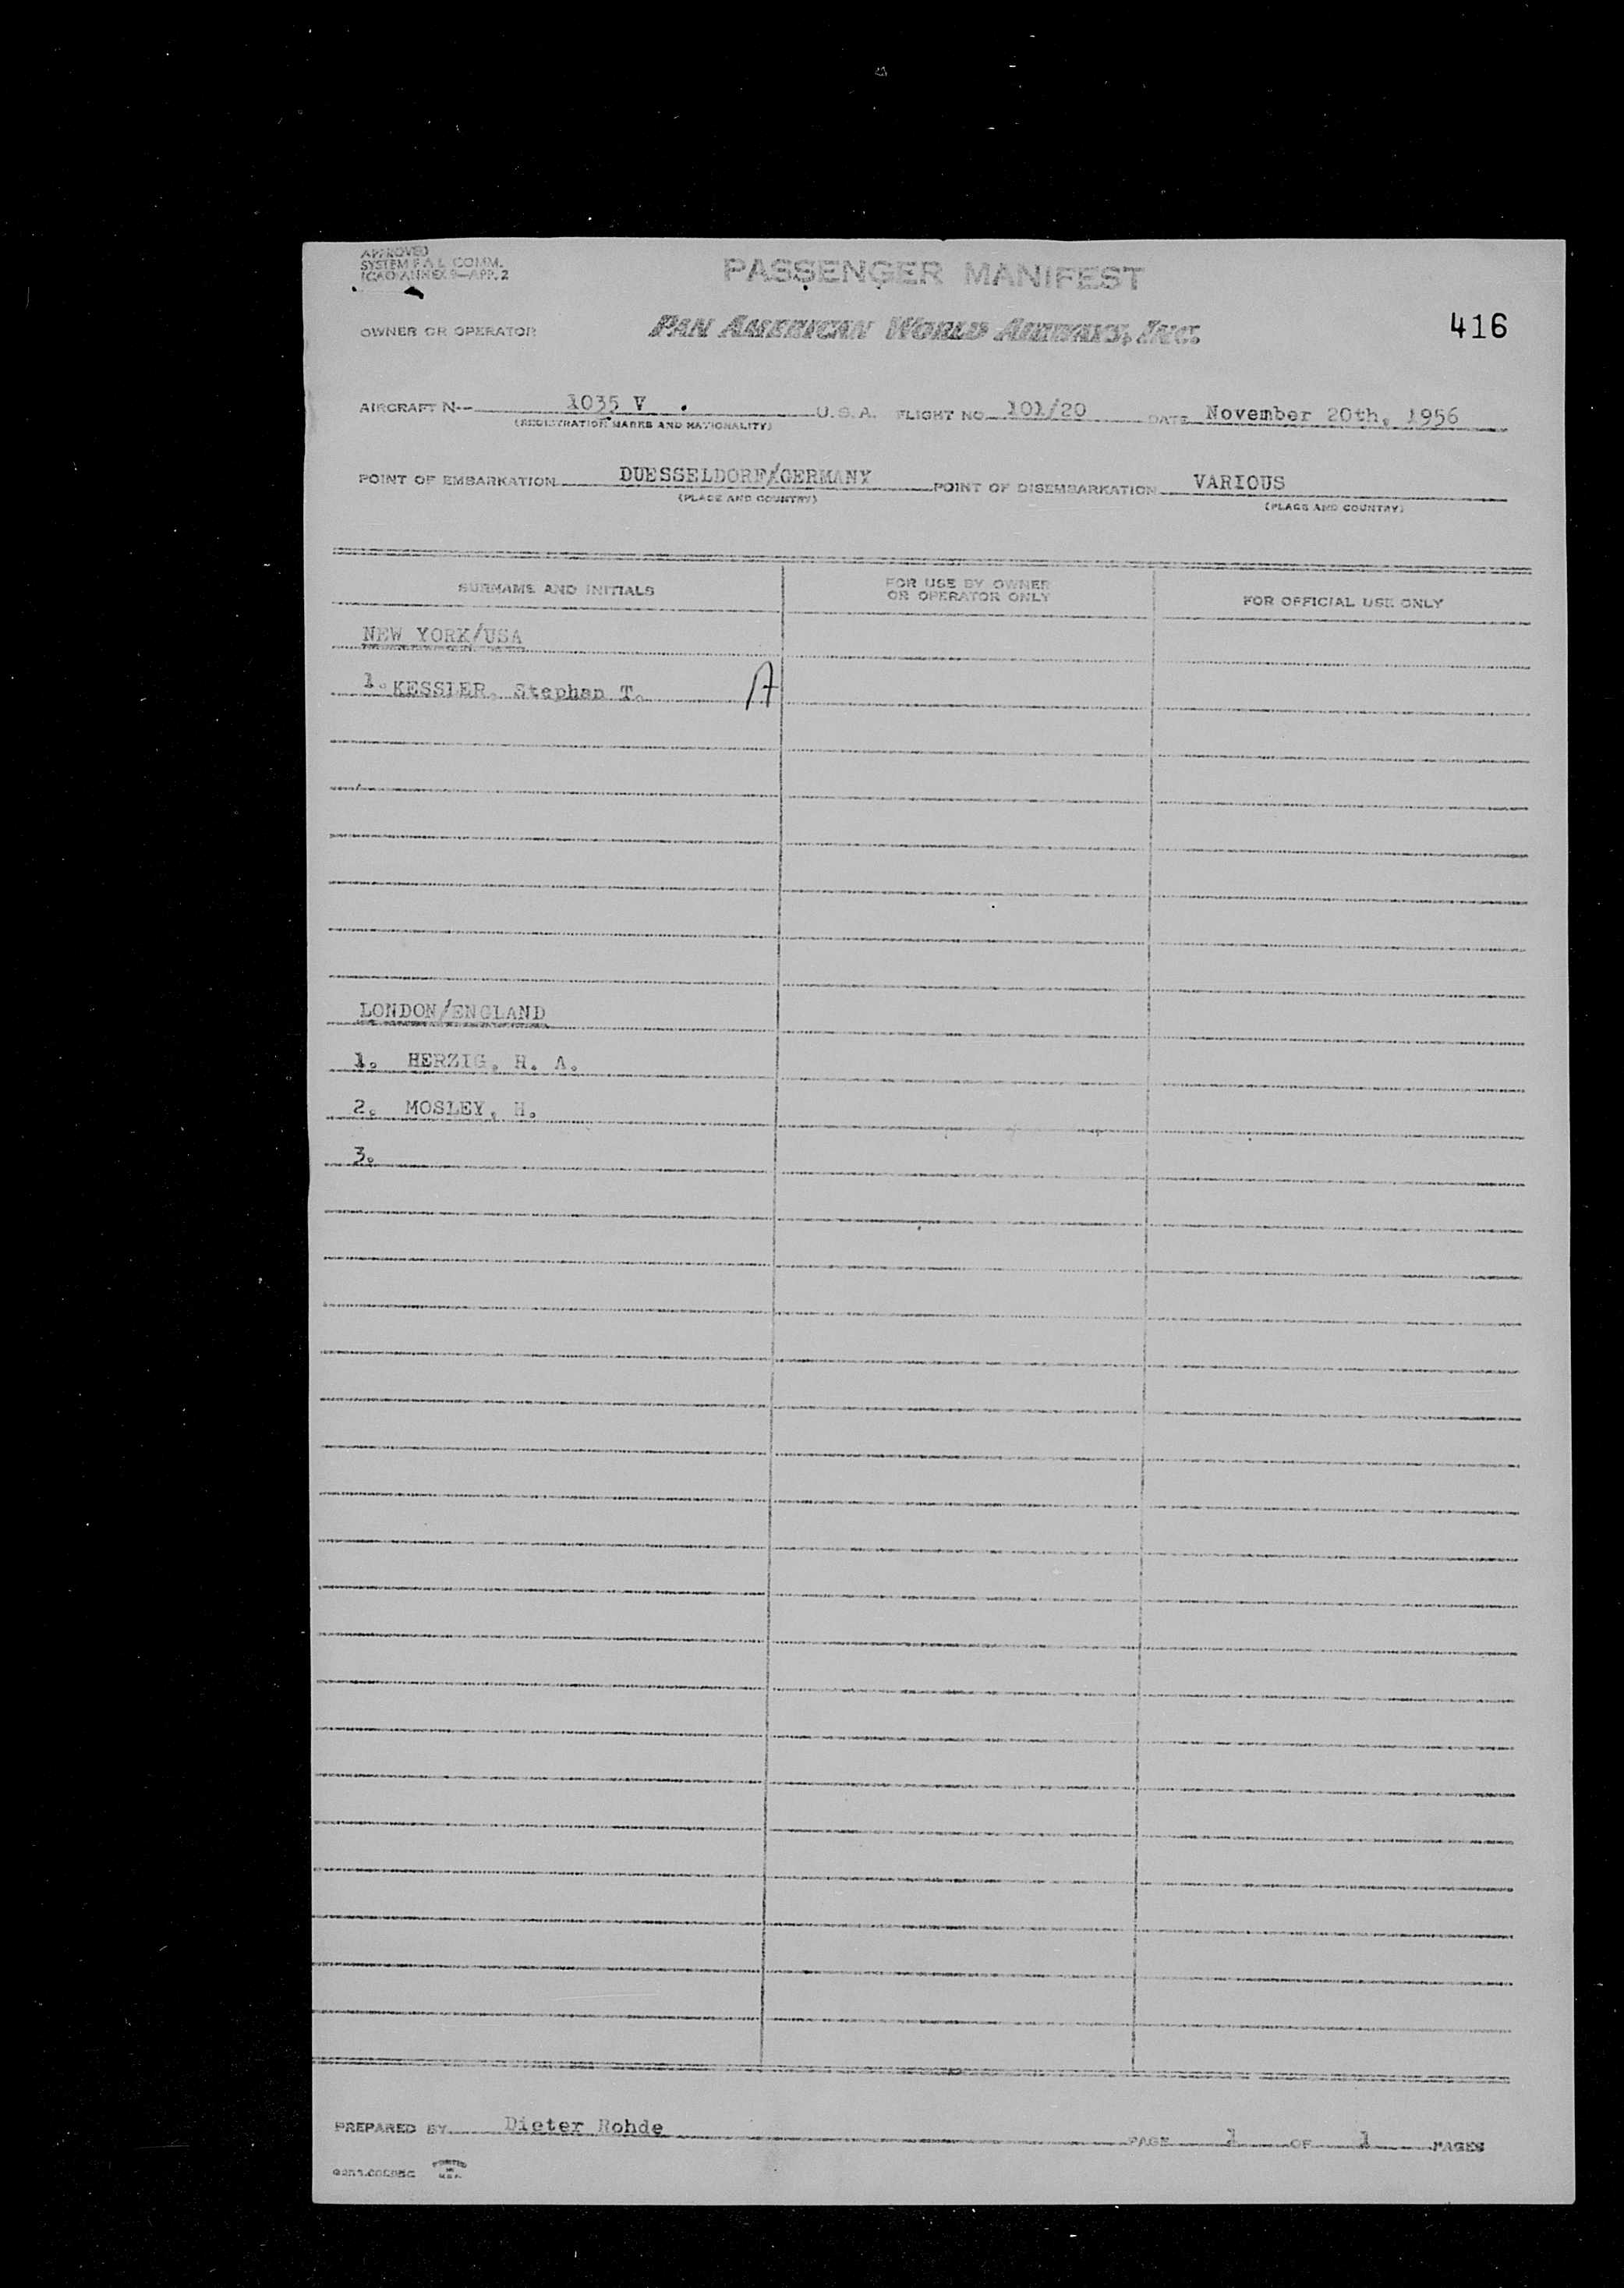 APPROVED
SYSTEM F.A.L. COMM.
ICAO ANNEX 9—APP. 2
PASSENGER MANIFEST
OWNER OR OPERATOR PAN AMERICAN WORLD AIRWAYS, INC. 416
AIRCRAFT N- 1035 V . U.S.A. FLIGHT NO. 101/20 DATE November 20th, 1956
(REGISTRATION MARKS AND NATIONALITY)
POINT OF EMBARKATION DUESSELDORF/GERMANY POINT OF DISEMBARKATION VARIOUS
(PLACE AND COUNTRY) (PLACE AND COUNTRY)
SURNAME AND INITIALS FOR USE BY OWNER OR OPERATOR ONLY FOR OFFICIAL USE ONLY
NEW YORK/USA
1. KESSLER, Stephan T. A
LONDON/ENGLAND
1. HERZIG, H. A.
2. MOSLEY, H.
3.
PREPARED BY Dieter Rohde PAGE 1 OF 1 PAGES
PRINTED IN U.S.A.